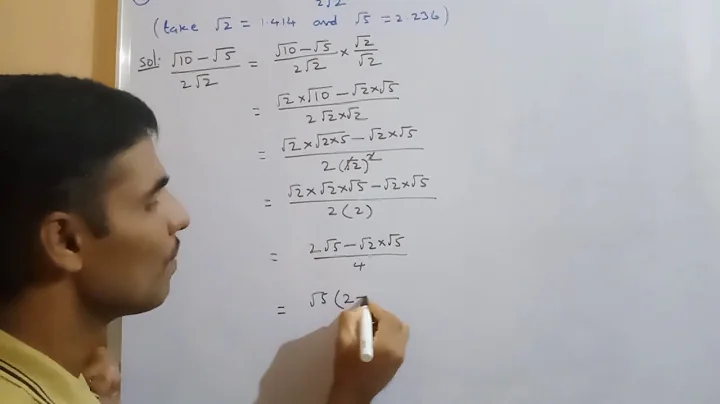 2√2
(take √2 = 1.414 and √5 = 2.236)
Sol: (√10 − √5)/(2√2) = (√10 − √5)/(2√2) × √2/√2
= (√2×√10 − √2×√5)/(2√2×√2)
= (√2×√(2×5) − √2×√5)/(2(√2)²)
= (√2×√2×√5 − √2×√5)/(2(2))
= (2√5 − √2×√5)/4
= √5(2−